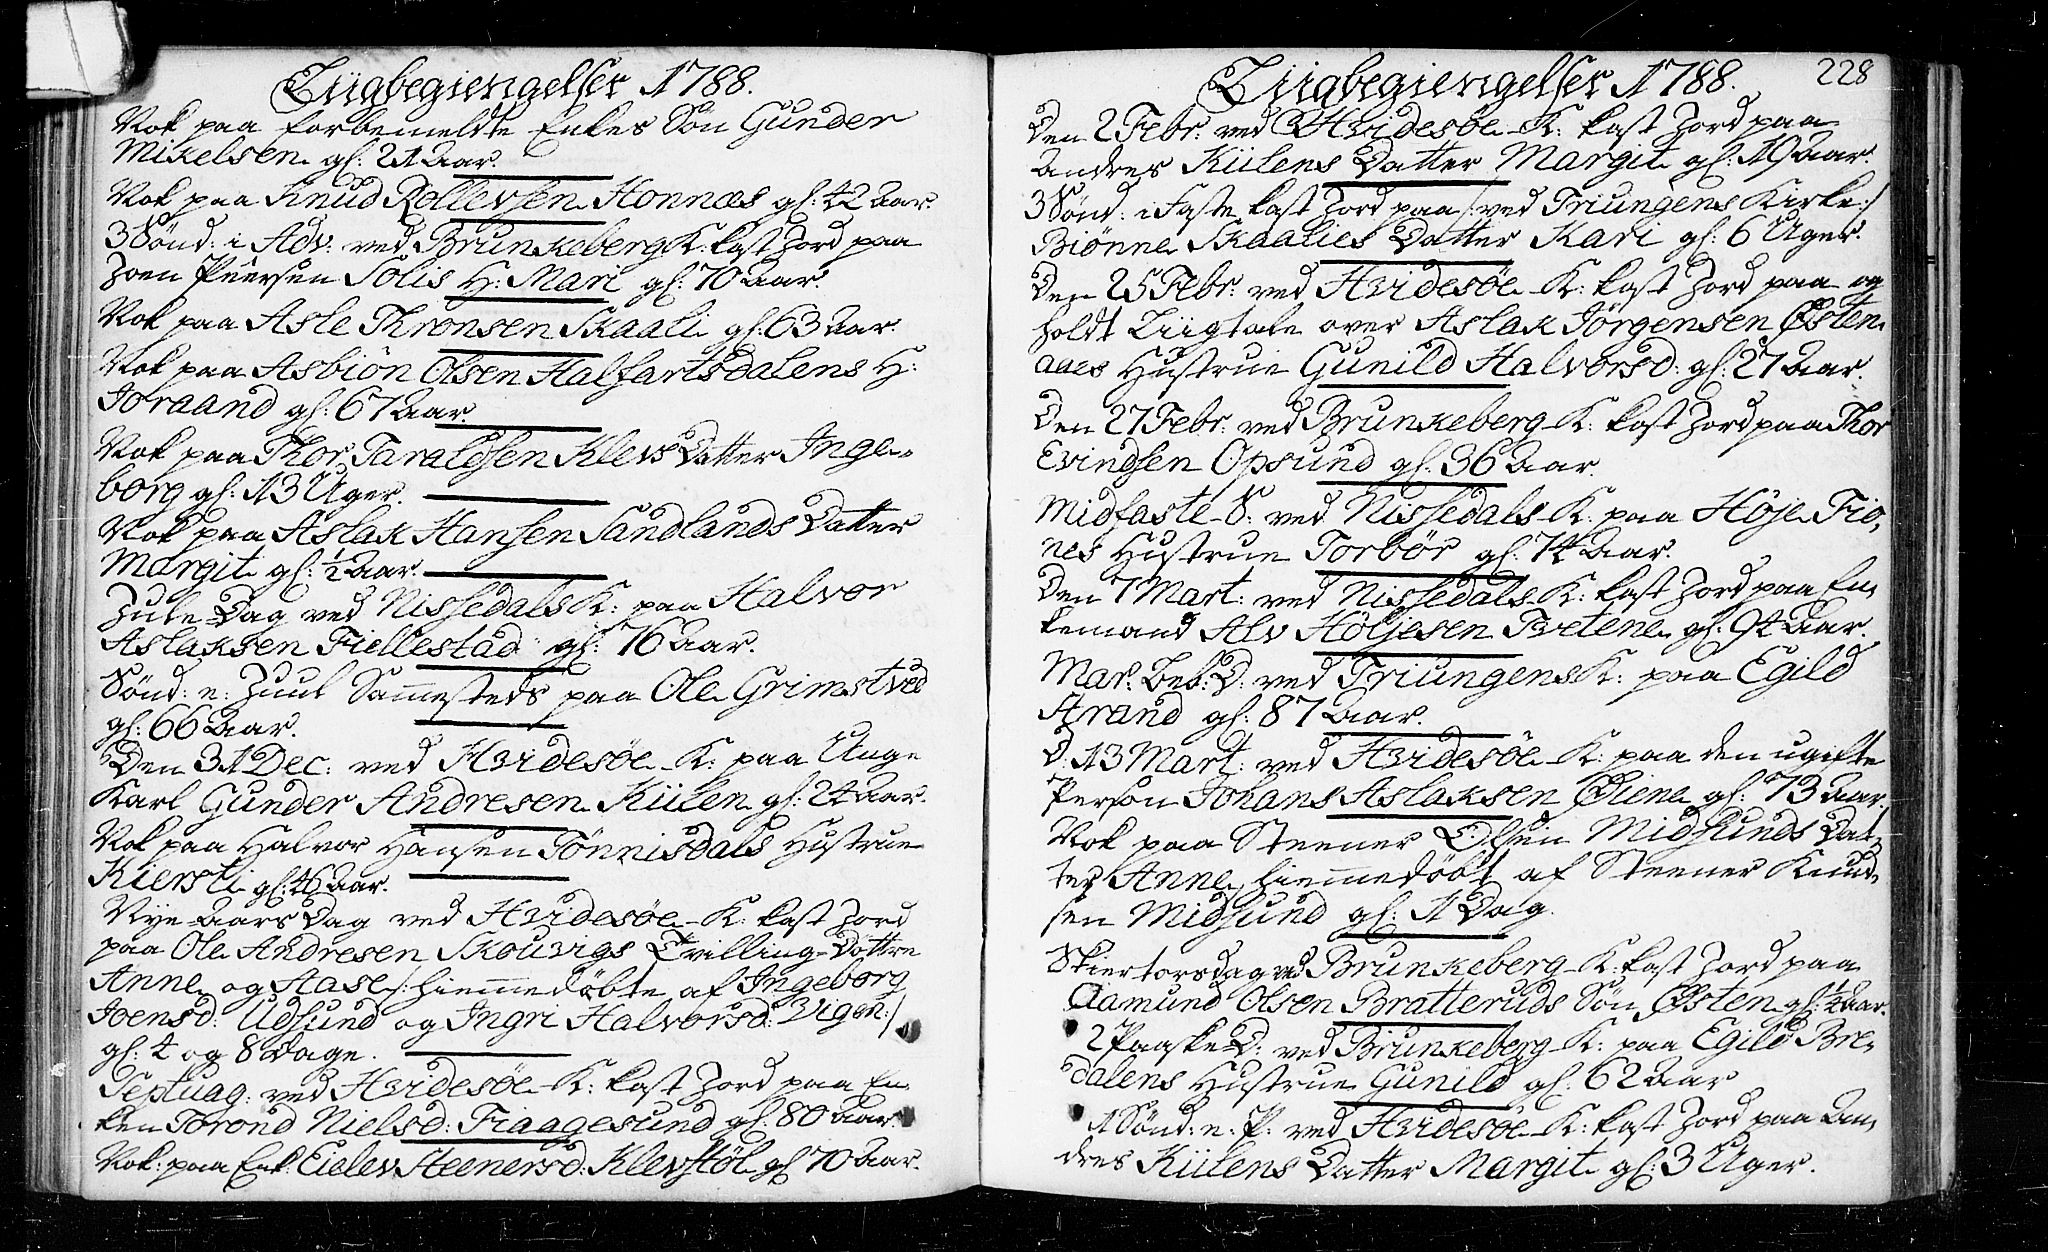 Liigbegiengelser 1788.
Nok paa forbemeldte Enkes Søn Gunder
Mikelsen gl: 21 Aar.
Nok paa Knud Rollevsen Honnæs gl: 42 Aar.
3 Sønd: i Adv: ved Brunkeberg K: kast Jord paa
Joen Peersen Solis H: Mari gl: 70 Aar.
Nok paa Asle Thronsen Skaali gl: 63 Aar.
Nok paa Asbiön Olsen Halfartsdalens H:
Joraand gl: 67 Aar.
Nok paa Thor Taraldsen Klevs Datter Inge-
borg gl: 13 Uger.
Nok paa Aslak Hansen Sandlands Datter
Margit gl: 1/2 Aar.
Jule-Dag ved Nissedals K: paa Halvor
Aslaksen Fiellestad gl: 76 Aar.
Sönd: n: Juul Sammesteds paa Ole Grimstved
gl: 66 Aar.
Den 31 Dec: ved Hvidesøe K: paa Unge
Karl Gunder Andresen Kiilen gl: 24 Aar.
Nok paa Halvor Hansen Tönnisdals Hustrue
Kiersti gl: 46 Aar.
Nye-Aars Dag ved Hvidesøe K: kast Jord
paa Ole Andresen Skouvigs Tvilling-Döttre
Anne og Aase /: hiemmedøbte af Ingeborg
Joensd: Udsund og Ingri Halvorsd: Vigen :/
gl: 4 og 8 Dage.
Septuag: ved Hvidesøe K: kast Jord paa En-
ken Torond Nielsd: Fiaagesund gl: 80 Aar.
Nok: paa Enk: Eielev Steenersd: Klevstöl gl 70 Aar.
228
Liigbegiengelser 1788.
Den 2 Febr: ved Hvidesøe K: kast Jord paa
Andres Kiilens Datter Margit gl: 19 Aar.
3 Sønd: i Faste kast Jord paa /: ved Triungens Kirke :/
Biønne Skaalies Datter Kari gl: 6 Uger.
Den 25 Febr: ved Hvidesøe K: kast Jord paa og
holdt Liigtale over Aslak Jörgensen Østen-
aaes Hustrue Gunild Halvorsd: gl: 27 Aar.
Den 27 Febr: ved Brunkeberg K: kast Jord paa Thor
Evindsen Opsund gl: 36 Aar.
Midfaste-S: ved Nissedals K: paa Höje Fio-
nes Hustrue Torbör gl: 74 Aar.
Den 7 Mart: ved Nissedals K: kast Jord paa En-
kemand Alv Höljesen Tvetene gl: 94 Aar.
Mar: Beb: D: ved Triungens K: paa Egild
Arand gl: 87 Aar.
D: 13 Mart: ved Hvidesøe K: paa den ugifte
Person Johans Aslaksen Øiene gl: 73 Aar.
Nok paa Steener Olsen Midsunds Dat-
ter Anne, hiemmedöbt af Steener Knud-
sen Midsund gl: 1 Dag.
Skiertorsdag ved Brunkeberg K: kast Jord paa
Aamund Olsen Bratteruds Søn Østen gl: 1/4 Aar.
2 Paaske D: ved Brunkeberg K: paa Egild Bre-
dalens Hustrue Gunild gl: 62 Aar
1 Sönd: n: P: ved Hvidesøe K: kast Jord paa An-
dres Kiilens Datter Margit gl: 3 Uger.